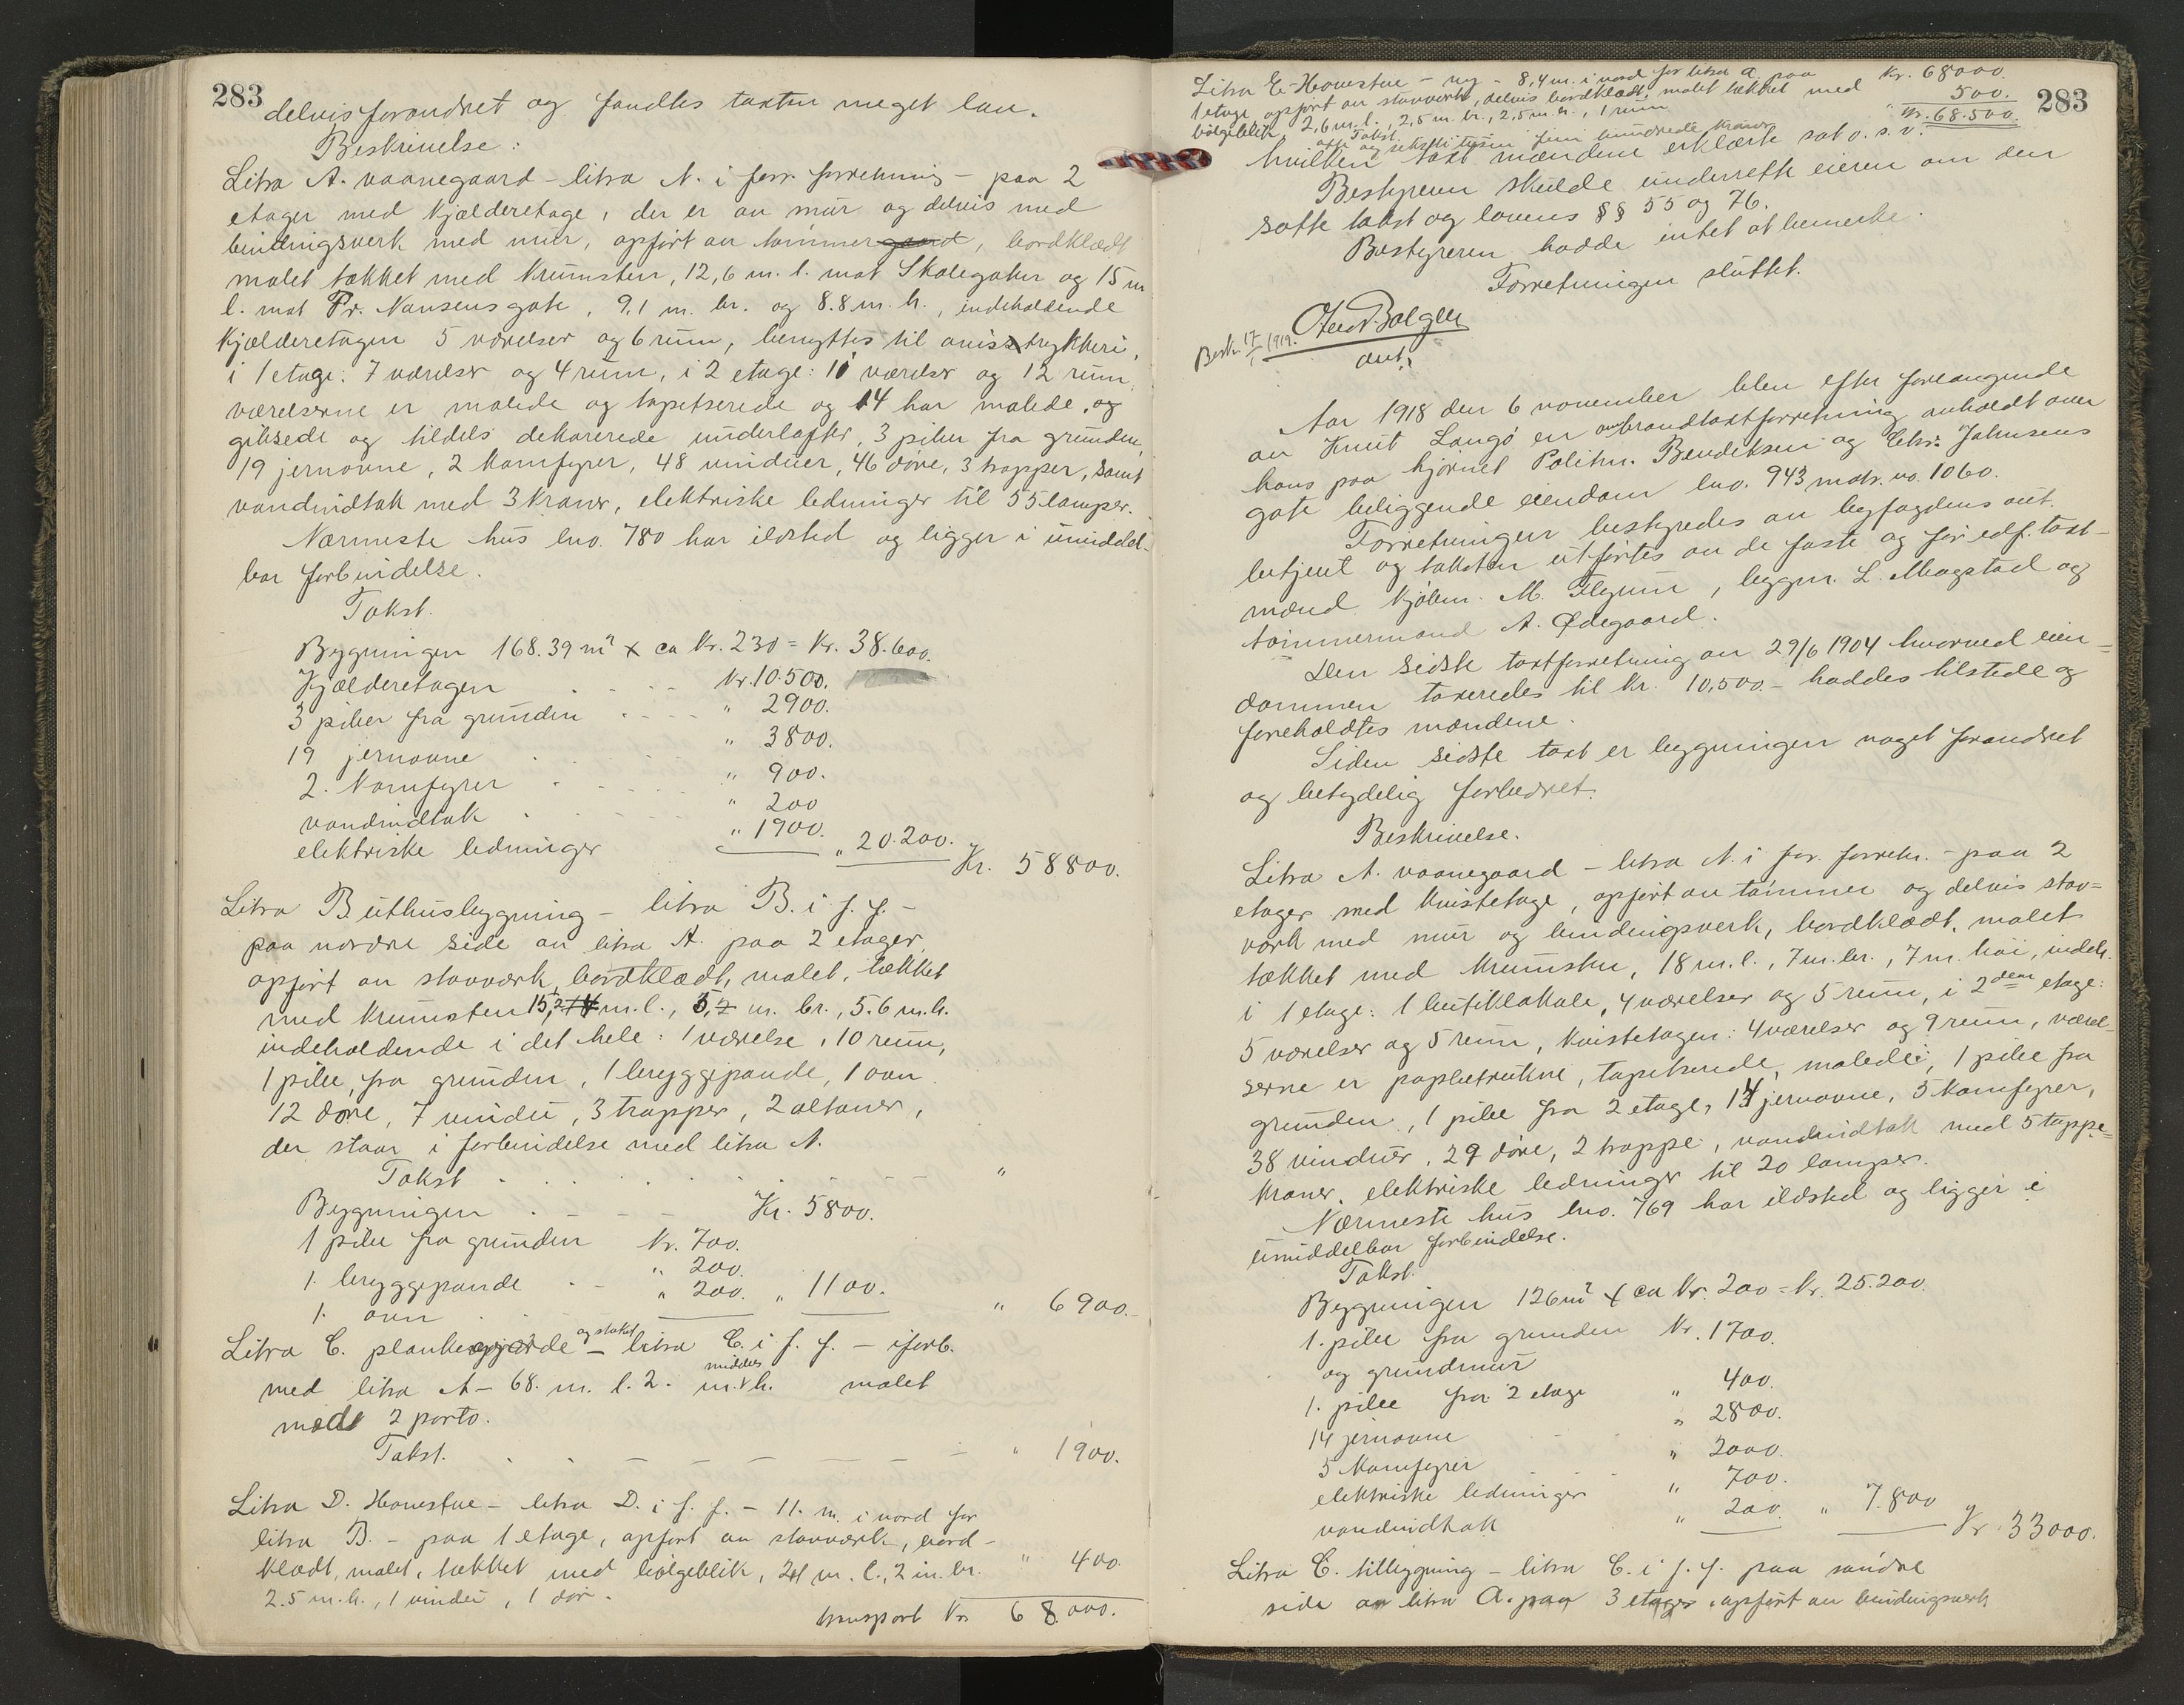 283
delvis forandret og fandtes taxten meget lav.
Beskrivelse:
Litra A. vaanegaard - litra A. i forr. forretning - paa 2
etager med kjælderetage, der er av mur og delvis med
bindingsverk med mur, opført av tømmer gaard, bordklædt
malet tækket med krumsten, 12,6 m. l. mot Skolegaten og 15 m
l. mot Fr. Nansens gate, 9,1 m. br. og 8.8 m. h., indeholdende
kjælderetagen 5 værelser og 6 rum, benyttes til avistrykkeri,
i 1 etage: 7 værelser og 4 rum, i 2 etage: 11 værelser og 12 rum,
værelserne er malede og tapetserede og 14 har malede, og
gibsede og tildels dekorerede underlofter, 3 piber fra grunden,
19 jernovne, 2 komfyrer, 48 vinduer, 46 døre, 3 trapper, samt
vandindtak med 3 kraner, elektriske ledninger til 55 lamper.
Nærmeste hus lno. 780 har ildsted og ligger i umiddel-
bar forbindelse.
Takst.
Bygningen 168.39 m² x ca Kr. 230 = Kr. 38.600.
Kjælderetagen . . . . Kr. 10.500.
3 piber fra grunden . . . . " 2900.
19 jernovne " 3800.
2. Komfyrer " 900.
vandindtak " 200
elektriske ledninger " 1900. " 20.200. Kr. 58800.
Litra B uthusbygning - litra B. i f. f. -
paa nordre side av litra A. paa 2 etager,
opført av stavværk, bordklædt, malet, tækket
med krumsten 15,2 m. l., 5, m. br., 5.6 m. h.
indeholdende i det hele: 1 værelse, 10 rum,
1 pibe, fra grunden, 1 bryggepande, 1 ovn
12 døre, 7 vindu, 3 trapper, 2 altaner,
der staar i forbindelse med litra A.
Takst . . . . "
Bygningen . - - - Kr. 5800.
1 pibe fra grunden Kr. 700.
1. bryggepande " 200.
1. ovn " 200. " 1100. " 6900.-
Litra C. plankegjærde og stakit - litra C. i f. f. - iforb.
med litra A - 68. m. l. 2. m. middels h. malet
med 2 porto.
Takst. . . - - - - " 1900.
Litra D. Havestue - litra D. i f. f. - 11. m. i nord for
litra B. - paa 1 etage, opført av stavværk, bord-
klædt, malet, tækket med bølgeblik, m. l., 2 m. br. " 400.
2.5 m. h., 1 vindu, 1 dør.
transport Kr. 68.000.
Litra E. Havestue - ny - 8,4 m. i nord for litra a. paa Kr. 68000.
1 etage opført av stavverk, delvis bordklædt, malet tækket med 500.
bølgeblik, 2,6 m. l., 2,5 m. br., 2,5 m. h., 1 rum Kr. 68.500.
283
Takst.
otte og seksti tusen fem hundrede kroner
hvilken taxt mændene erklærte sat o. s. v.
Bestyreren skulde underrette eieren om den
satte takst og lovens §§ 55 og 76.
Bestyreren hadde intet at bemerke.
Forretningen sluttet.
Beskr. 17/1 1919.
aut.
Aar 1918 den 6 november blev efter forlangende
av Knut Langø en ombrandtaxtforretning avholdt over
hans paa hjørnet Politim. Bendiksen og Chr. Johnsens
gate beliggende eiendom lno. 943 matr. no. 1060.
Forretningen bestyredes av byfogdens aut.
betjent og taksten utførtes av de faste og før edf. taxt-
mænd kjøbm. M. Flyum, byggm. L. Magstad og
tømmermand A. Ødegaard.
Den sidste taxtforretning av 29/6 1904 hvorved eien-
dommen taxeredes til Kr. 10,500.- haddes tilstede og
foreholdtes mændene.
Siden sidste taxt er bygningen noget forandret
og betydelig forbedret.
Beskrivelse.
Litra A. vaanegaard - litra A. i for. forretn. - paa 2
etager med kvistetage, opført av tømmer og delvis stav=
værk med mur og bindingsverk, bordklædt, malet
tækket med krumsten, 18 m. l., 7 m. br., 7 m. høi, indeh.
i 1 etage: 1 butiklokale, 4 værelser og 5 rum, i 2den etage:
5 værelser og 5 rum, kvistetagen: 4 værelser og 9 rum, værel-
serne er papbetrukne, tapetserede, malede, 1 pibe fra
grunden, 1 pibe fra 2 etage, 14 jernovne, 5 komfyrer,
38 vinduer, 29 døre, 2 trappe, vandindtak med 5 tappe=
kraner, elektriske ledninger til 20 lamper.
Nærmeste hus lno. 769 har ildsted og ligger i
umiddelbar forbindelse.
Takst.
Bygningen 126 m² x ca Kr. 200 = Kr. 25.200.
1. pibe fra grunden Kr. 1700.
og grundmur
1. pibe fra 2 etage " 400.
14 jernovne " 2800.
5 Komfyrer " 2000.
elektriske ledninger " 700.
vandindtak " 200. " 7.800 Kr. 33000.
Litra C. tilbygning - litra C. i f. f. paa søndre
side av litra A. paa 3 etager, opført av bindingsverk